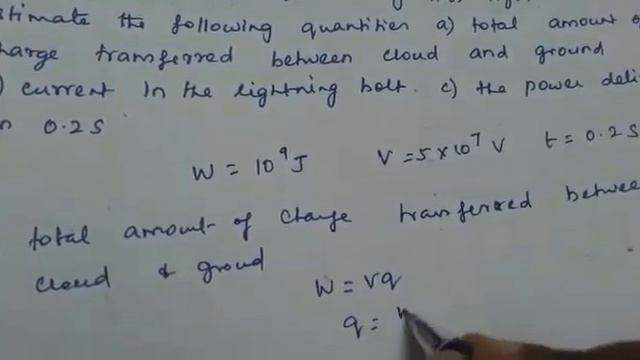 the following quantities a) total amount
transferred between cloud and ground
current in the lightning bolt. c) the power
0.2 s
W = 10⁹ J V = 5 × 10⁷ V t = 0.2 s
total amount of charge transferred
cloud & groud
W = Vq
q =